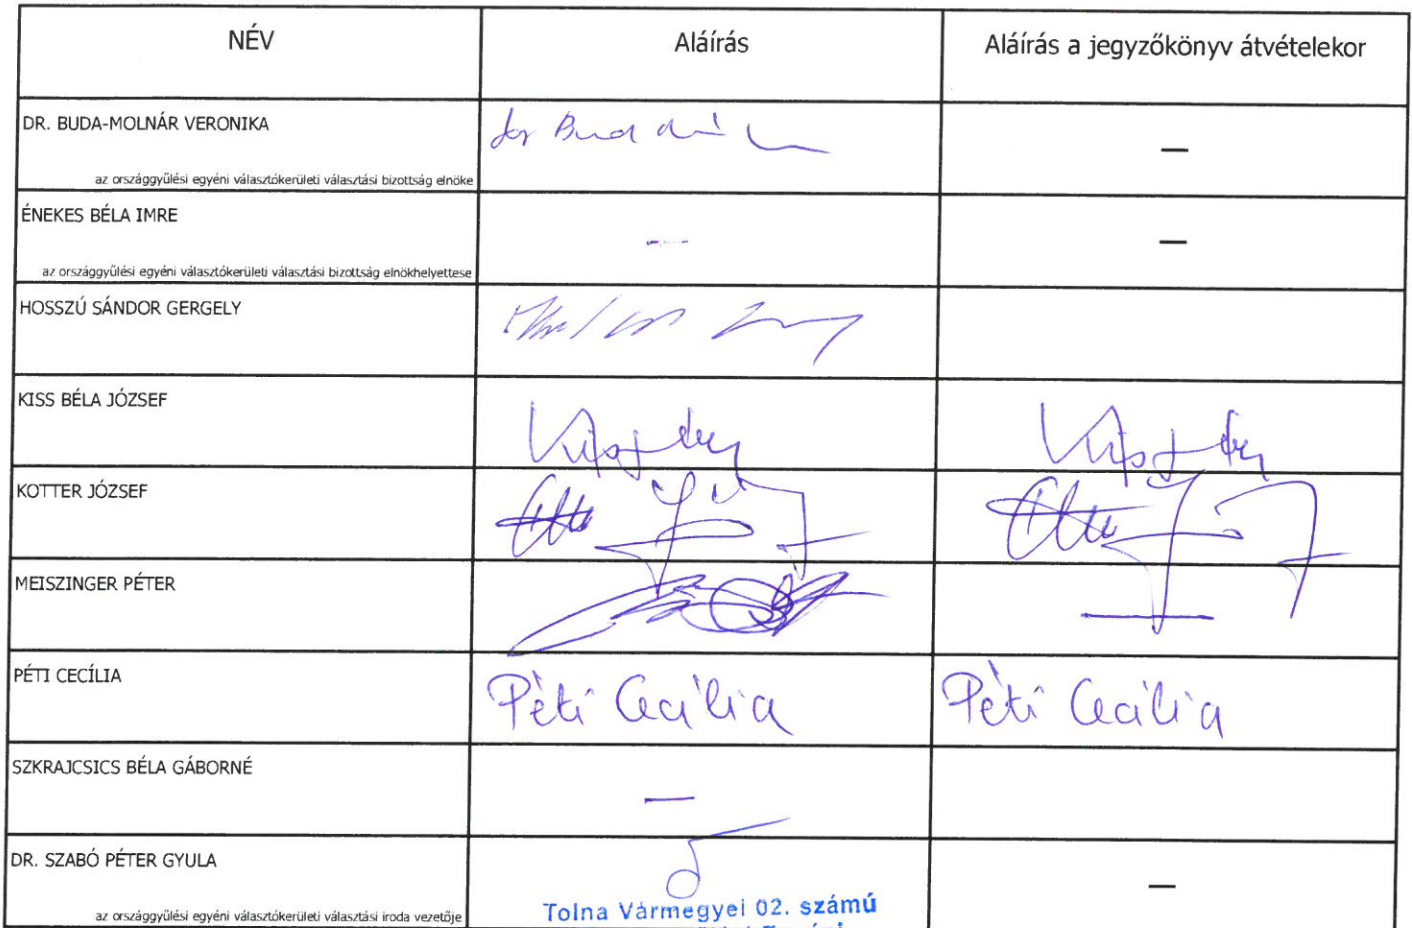 NÉV Aláírás Aláírás a jegyzőkönyv átvételekor
DR. BUDA-MOLNÁR VERONIKA
dr Buda
—
az országgyűlési egyéni választókerületi választási bizottság elnöke
ÉNEKES BÉLA IMRE
— —
az országgyűlési egyéni választókerületi választási bizottság elnökhelyettese
HOSSZÚ SÁNDOR GERGELY
KISS BÉLA JÓZSEF
KOTTER JÓZSEF
MEISZINGER PÉTER
—
PÉTI CECÍLIA
Péti Cecília Péti Cecília
SZKRAJCSICS BÉLA GÁBORNÉ
—
DR. SZABÓ PÉTER GYULA
—
az országgyűlési egyéni választókerületi választási iroda vezetője
Tolna Vármegyei 02. számú